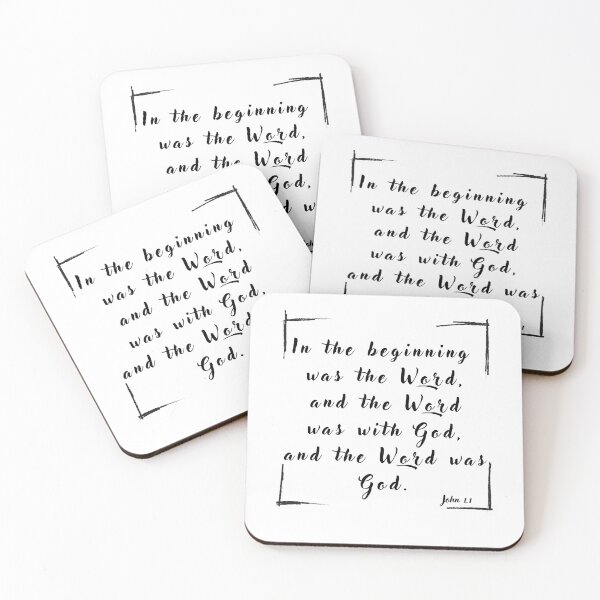 In the beginning
was the Word,
and the Word
God,
In the beginning
was the Word,
and the Word
was with God,
and the Word was
In the beginning
was the Word,
and the Word
was with God,
and the Word
God.
In the beginning
was the Word,
and the Word
was with God,
and the Word was
God.
John 1:1